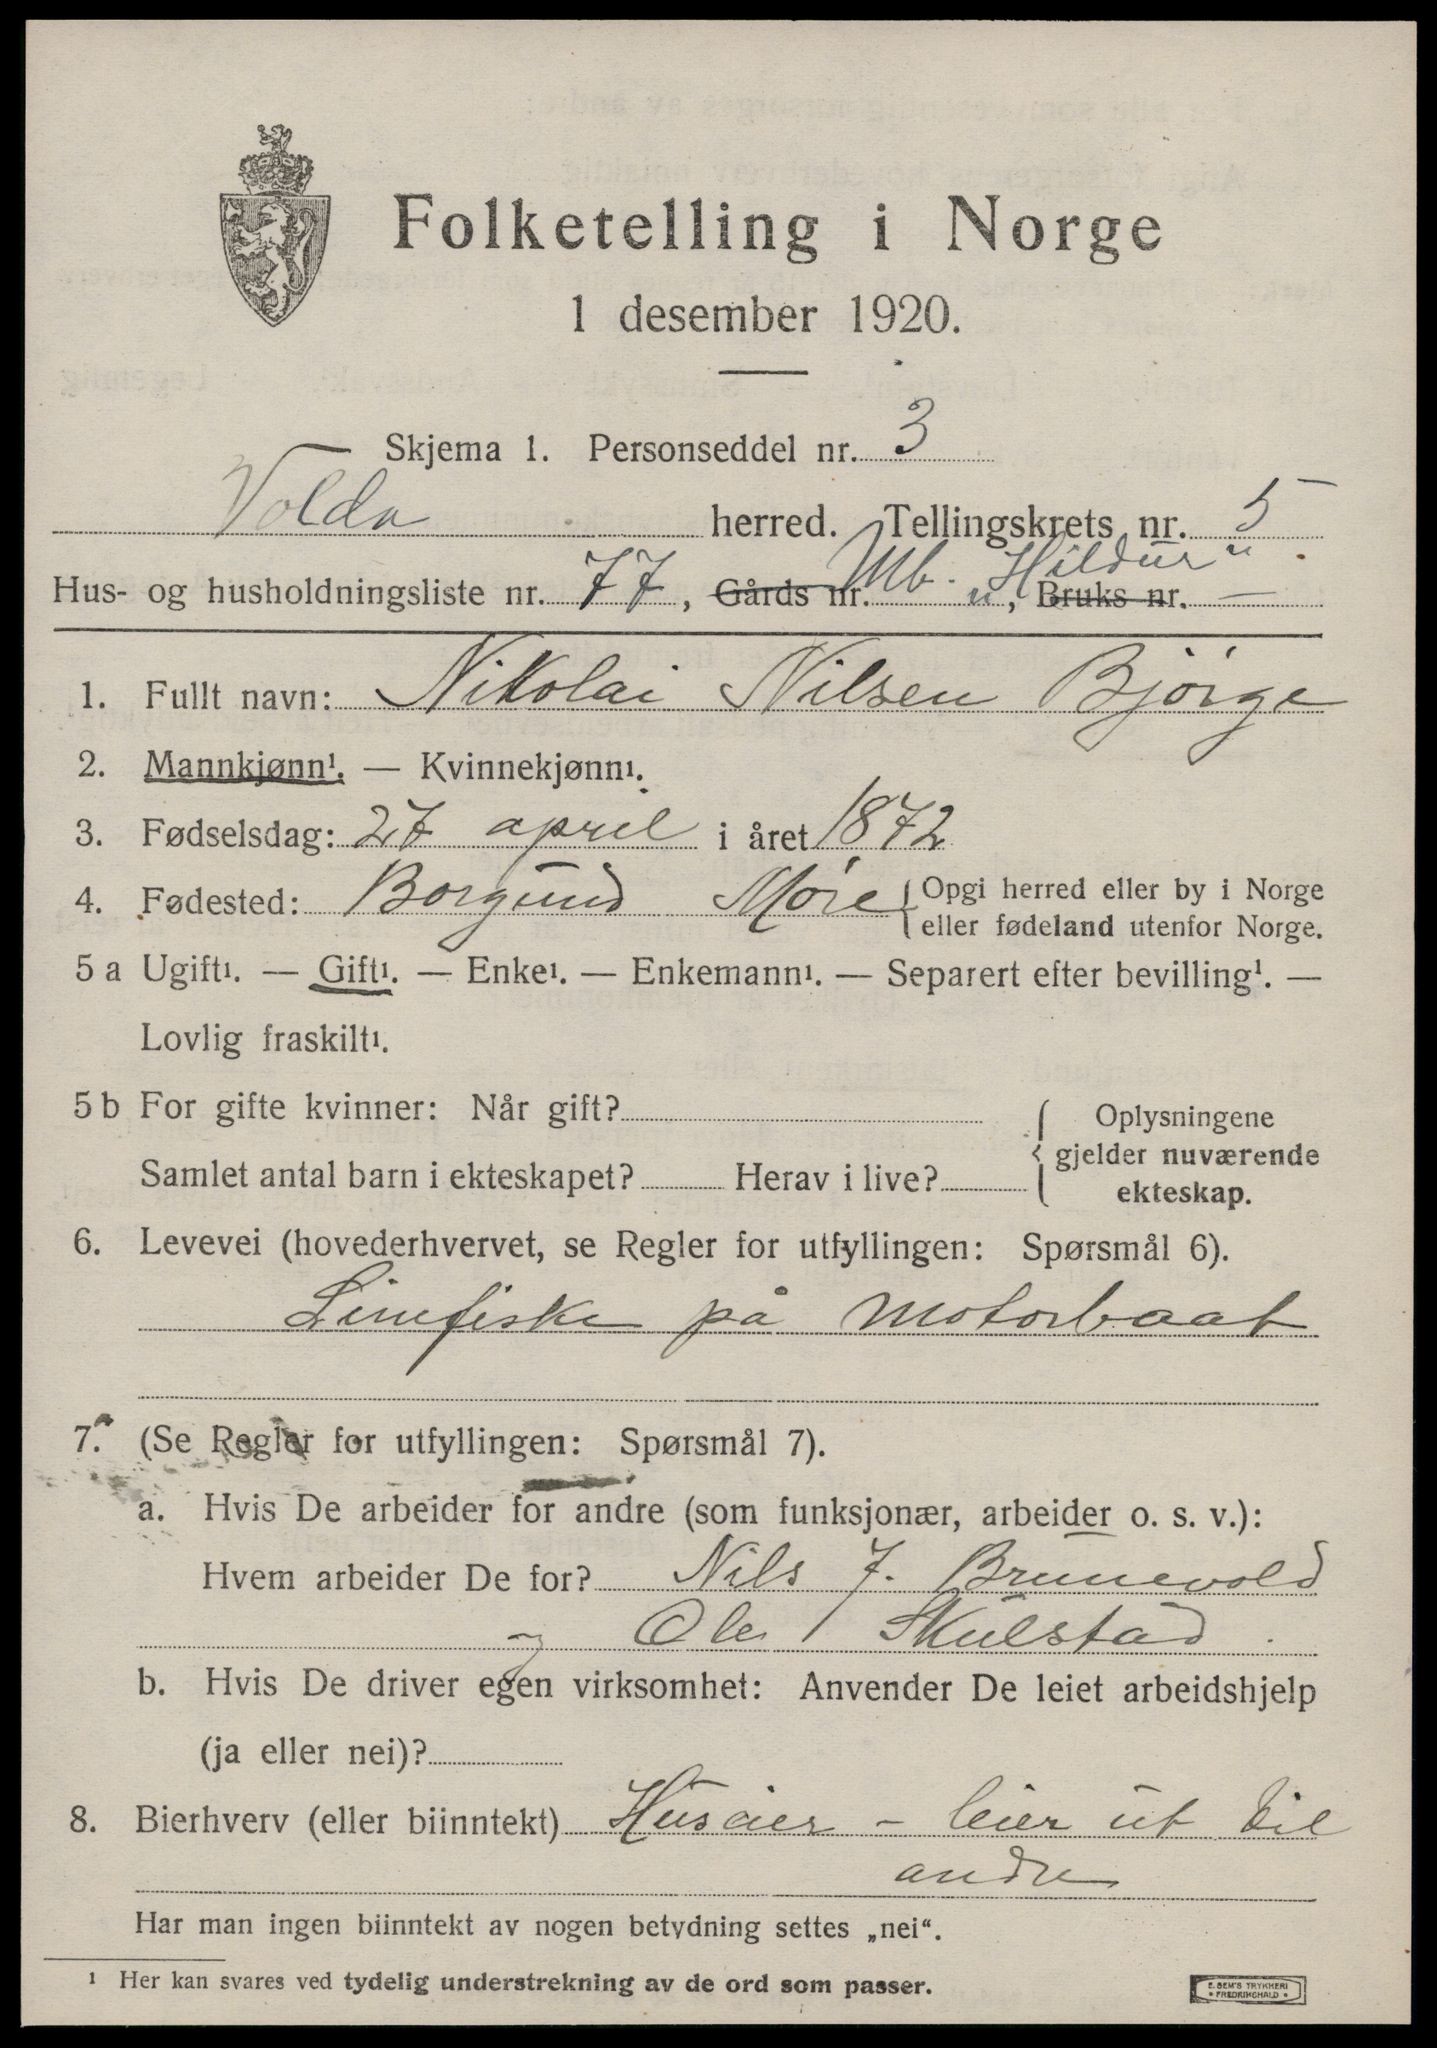 Folketelling i Norge
1 desember 1920.
Skjema 1. Personseddel nr. 3
Volda herred. Tellingskrets nr. 5
Hus- og husholdningsliste nr. 77, Gårds nr. Mb. „Hildur“, Bruks nr. —
1. Fullt navn: Nikolai Nilsen Bjørge
2. Mannkjønn¹. — Kvinnekjønn¹.
3. Fødselsdag: 27 april i året 1872
4. Fødested: Borgund Møre { Opgi herred eller by i Norge
eller fødeland utenfor Norge.
5 a Ugift¹. — Gift¹. — Enke¹. — Enkemann¹. — Separert efter bevilling¹. —
Lovlig fraskilt¹.
5 b For gifte kvinner: Når gift?
Samlet antal barn i ekteskapet? Herav i live?
Oplysningene
gjelder nuværende
ekteskap.
6. Levevei (hovederhvervet, se Regler for utfyllingen: Spørsmål 6).
Linefiske på motorbaat
7. (Se Regler for utfyllingen: Spørsmål 7).
a. Hvis De arbeider for andre (som funksjonær, arbeider o. s. v.):
Hvem arbeider De for? Nils J. Brunevold
og Ole Skulstad.
b. Hvis De driver egen virksomhet: Anvender De leiet arbeidshjelp
(ja eller nei)?
8. Bierhverv (eller biinntekt) Huseier – leier ut til
andre
Har man ingen biinntekt av nogen betydning settes „nei“.
¹ Her kan svares ved tydelig understrekning av de ord som passer.
E. SEM'S TRYKKERI
• FREDRIKSHALD •